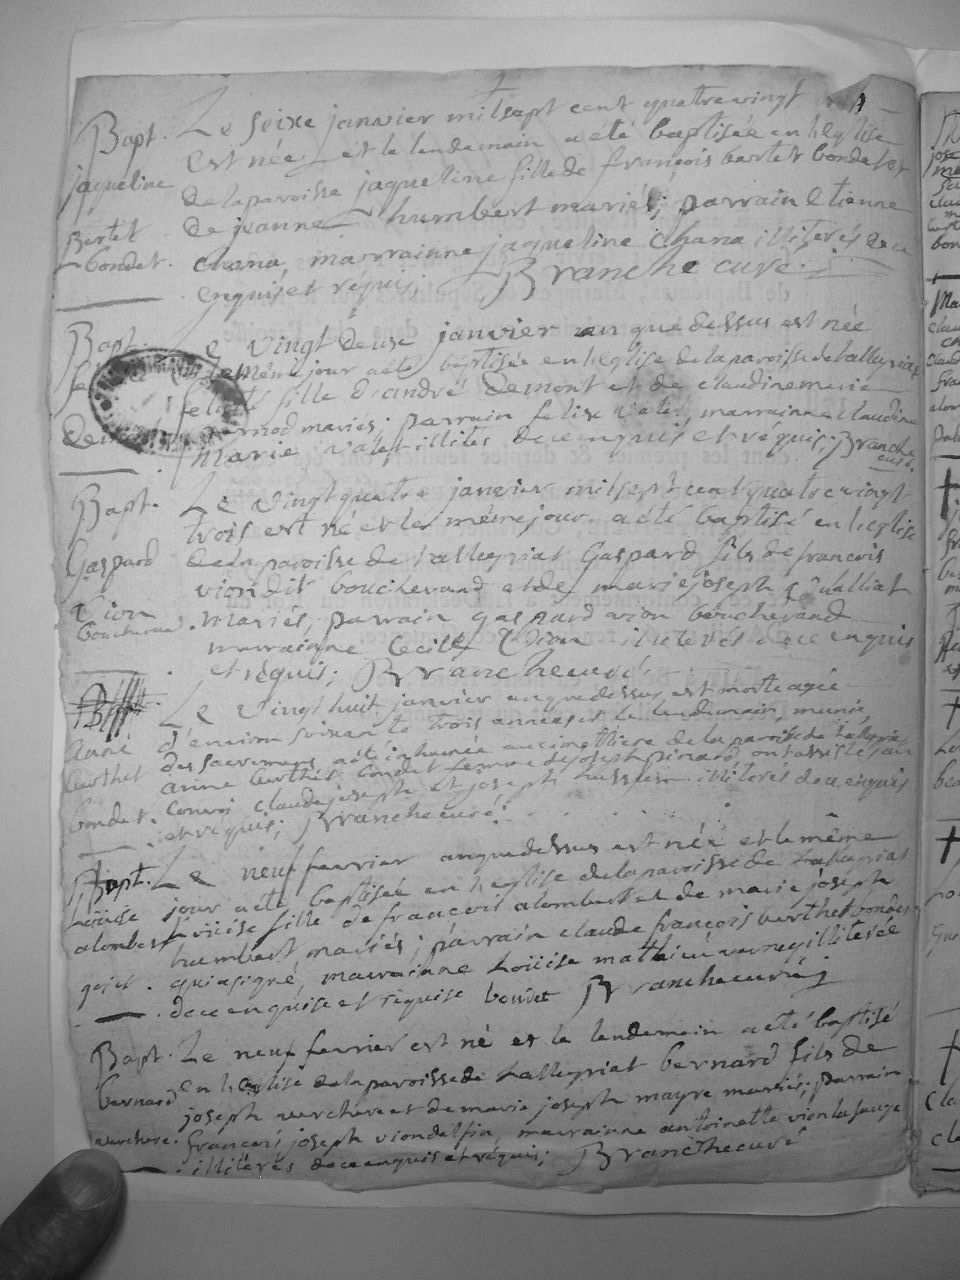 Bapt.
jaqueline
Bertet
bondet.
Le seixe janvier mil sept cent quatre vingt
Est née et le lendemain a été baptisée en l'eglise
de la paroisse jaqueline fille de françois bertet bondet et
de jeanne humbert mariés; parrain Etienne
chana, marrainne jaqueline chana illiterés de ce
enquis et réquis, Branche curé.
Bapt.
Le vingt deuxe janvier an que dessus est née
le même jour a été baptisée en l'eglise de la paroisse de Lalleyriat
fille d'andré Demont et de claudine marie
mariés; parrain felix marrainne claudine
Marie illités de ce enquis et réquis; Branche
curé.
Bapt.
Gaspard
Vion
boucherand.
Le vingt quatre janvier mil sept cent quatre vingt
trois est né et le même jour a été baptisé en l'eglise
de la paroisse de Lalleyriat Gaspard fils de francois
vion dit boucherand et de marie joseph
mariés, parrain gaspard vion boucherand
marrainne Cecile Vion illiterés de ce enquis
et réquis; Branche curé
anne
berthet
bondet.
Le vingt huit janvier an que dessus est morte agée
d'environ soixante trois années et le lendemain, munie
des sacremens, a été inhumée au cimettiere de la paroisse de Lalleyriat
anne berthet bondet femme de joseph pinard ont assisté au
convoi claude joseph et joseph illiterés de ce enquis
et requis; Branche curé;
Bapt.
Loüise
alombert
goist.
Le neuf fevrier an que dessus est née et le même
jour a été baptisée en l'eglise de la paroisse de Lalleyriat
Loüise fille de françois alombert et de marie joseph
humbert mariés; parrain claude françois berthet bondet
qui a signé, marrainne Loüise mathieu illiterée
de ce enquise et requise bondet Branche curé
Bapt.
bernard
verchere.
Le neuf fevrier est né et le lendemain a été baptisé
en l'eglise de la paroisse de Lalleyriat bernard fils de
joseph verchere et de marie joseph mayre mariés; parrain
françois joseph vion delfin, marrainne antoinette vion la sauge
illiterés de ce enquis et réquis; Branche curé